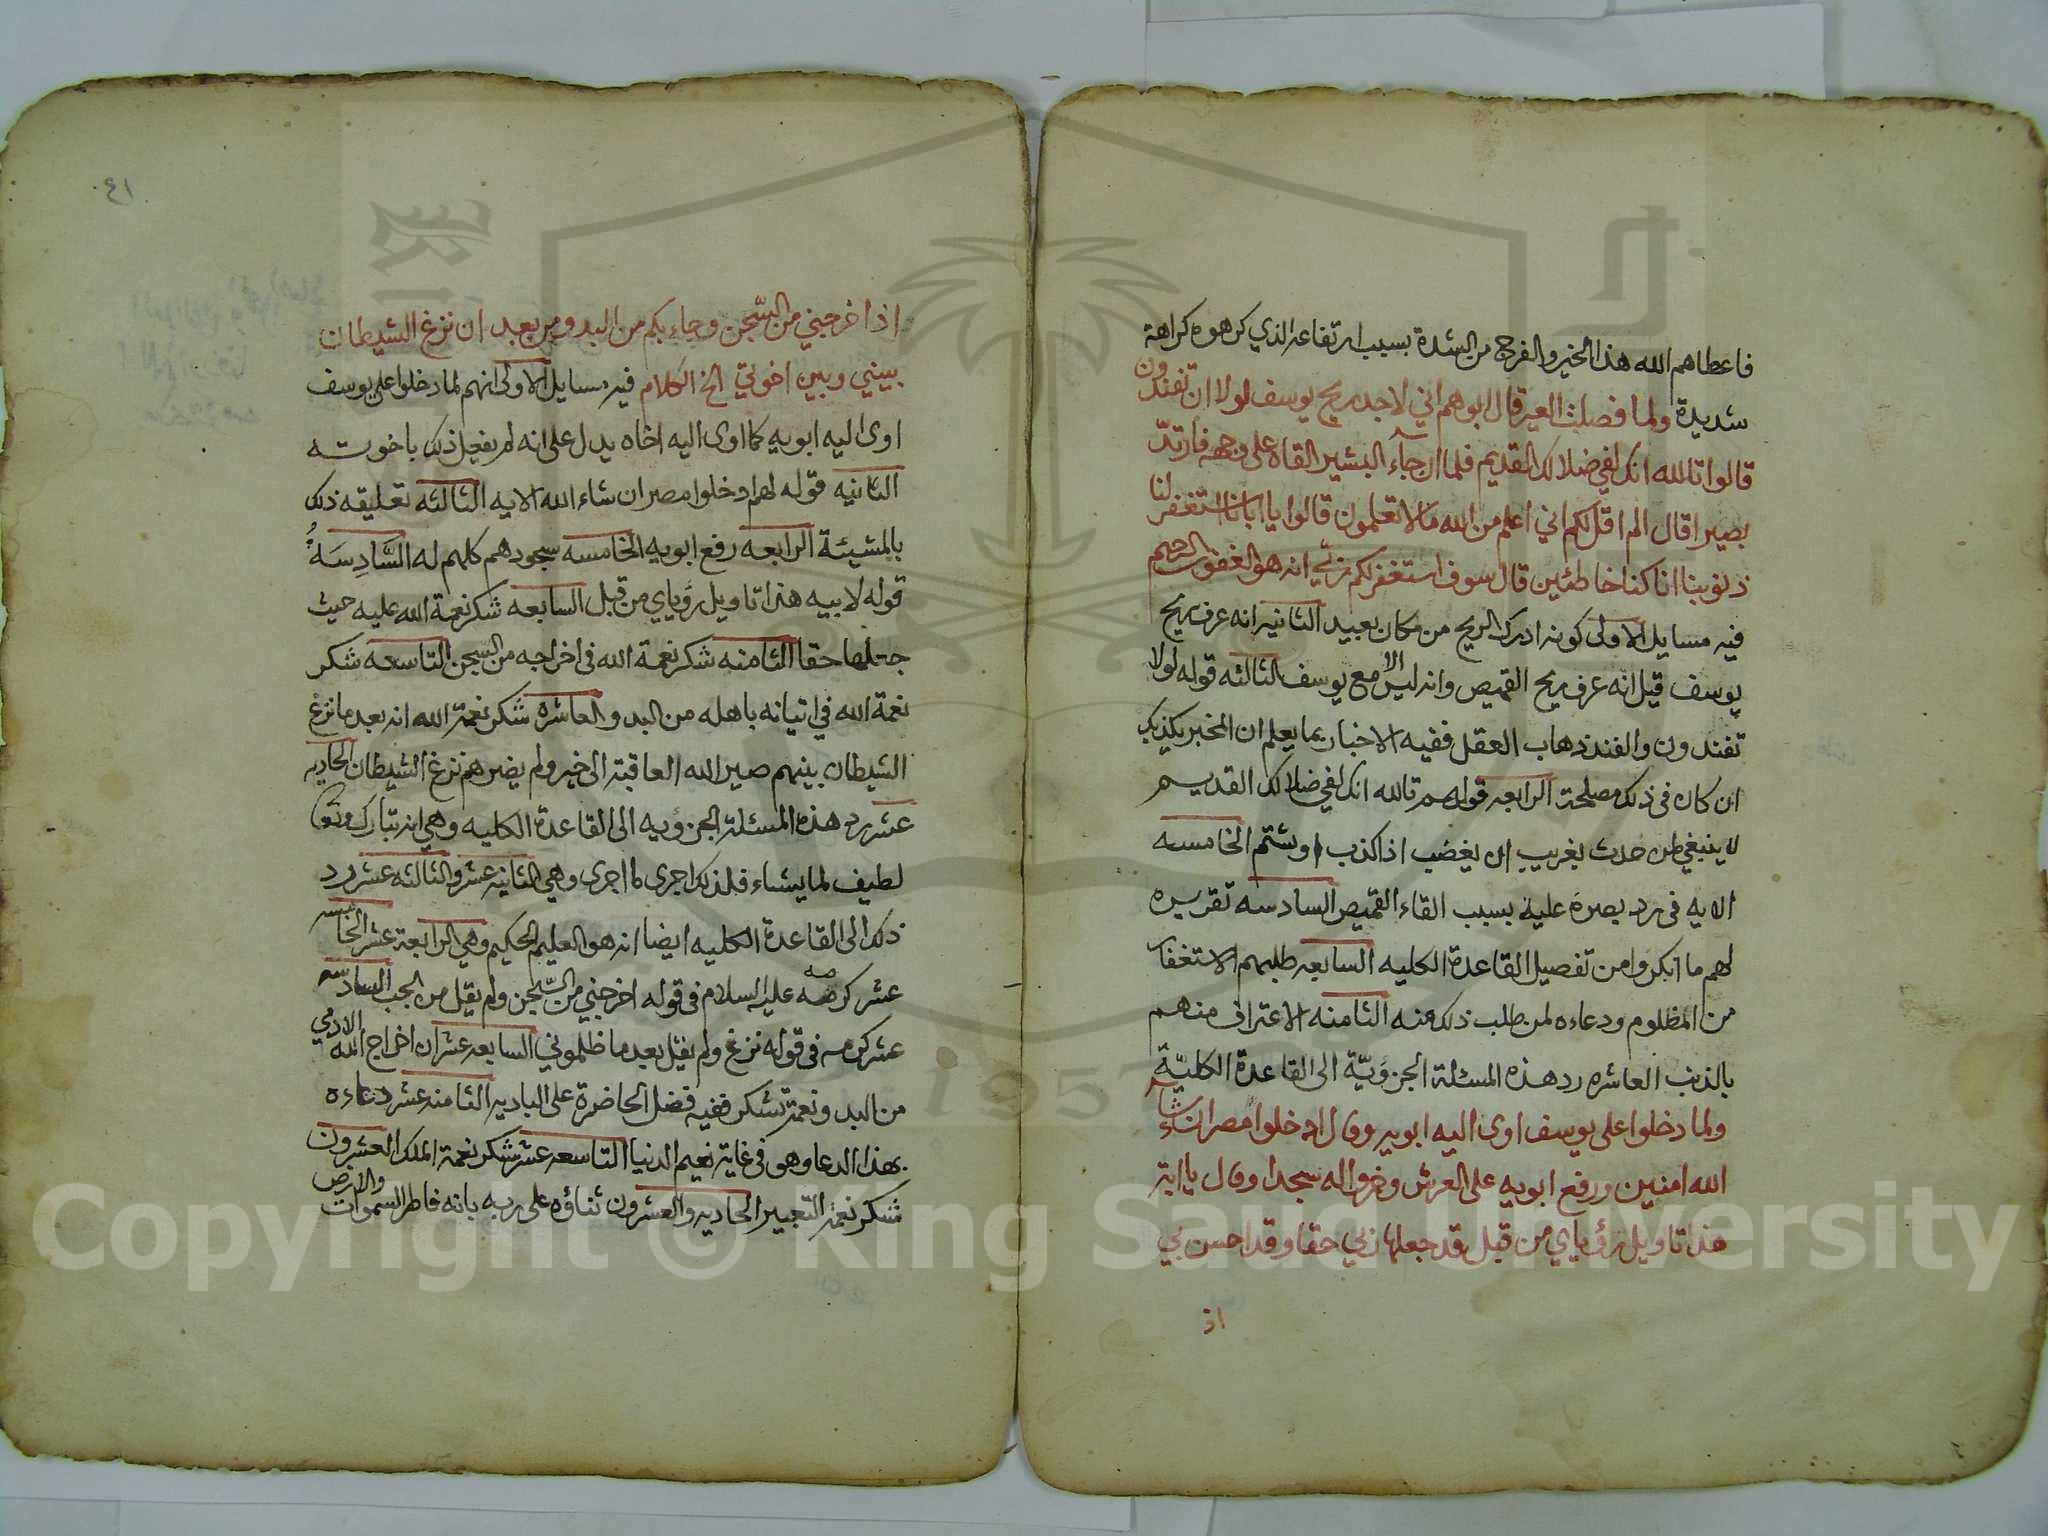 فاعطاهم الله هذا الخير والفرج من الشدة بسبب ارتفاعه الذي كرهوه كراهة
شديدة ولما فصلت العير قال ابوهم اني لاجد ريح يوسف لولا ان تفندون
قالوا تالله انك لفي ضلالك القديم فلما ان جآء البشير القاه على وجهه فارتدّ
بصيرا قال الم اقل لكم اني اعلم من الله ما لا تعلمون قالوا يا ابانا استغفر لنا
ذنوبنا انا كنا خاطئين قال سوف استغفر لكم ربّي انه هو الغفور الرحيم
فيه مسايل الاولى كونه ادرك الريح من مكان بعيد الثانيه انه عرف ريح
يوسف قيل انه عرف ريح القميص وانه ليس الا مع يوسف الثالثه قوله لولا
تفندون والفند ذهاب العقل ففيه الاخبار بما يعلم ان المخبر يكذبك
ان كان في ذلك مصلحة الرابعه قولهم تالله انك لفي ضلالك القديم
لا ينبغي لمن حدث بغريب ان يغضب اذا كذب او يشتم الخامسه
الايه في رد بصره عليه بسبب القاء القميص السادسه تقريره
لهم ما انكروا من تفصيل القاعدة الكليه السابعه طلبهم الاستغفار
من المظلوم ودعاءه لمن طلب ذلك منه الثامنه الاعتراف منهم
بالذنب العاشره رد هذه المسئلة الجزؤيّة الى القاعدة الكليّة
ولما دخلوا على يوسف اوى اليه ابويه وقال ادخلوا مصر ان شاء
الله امنين ورفع ابويه على العرش وخروا له سجدا وقال يا ابت
هذا تاويل رؤياي من قبل قد جعلها ربي حقا وقد احسن بي
اذ
٤١
اذ اخرجني من السّجن وجاء بكم من البدو من بعد ان نزغ الشيطان
بيني وبين اخوتي الخ الكلام فيه مسايل الاولى انهم لما دخلوا على يوسف
اوى اليه ابويه كما اوى اليه اخاه يدل على انه لم يفعل ذلك باخوته
الثانيه قوله لهم ادخلوا مصر ان شاء الله الايه الثالثه تعليقه ذلك
بالمشيئة الرابعه رفع ابويه الخامسه سجودهم كلهم له السَّادِسَةُ
قوله لابيه هذا تاويل رؤياي من قبل السابعه شكر نعمة الله عليه حيث
جعلها حقا الثامنه شكر نعمة الله في اخراجه من السجن التاسعه شكر
نعمة الله في اتيانه باهله من البدو العاشره شكر نعمة الله انه بعد ما نزغ
الشيطان بينهم صير الله العاقبة الى خير ولم يضرهم نزغ الشيطان الحاديه
عشر رد هذه المسئلة الجزؤيه الى القاعدة الكليه وهي انه تبارك وتعالى
لطيف لما يشاء فلذلك اجرى ما اجرى وهي الثانيه عشر والثالثه عشر رد
ذلك الى القاعدة الكليه ايضا انه هو العليم الحكيم وهي الرابعة عشر الخامسه
عشر كرمه عليه السلام في قوله اخرجني من السّجن ولم يقل من الجب السادسه
عشر كرمه في قوله نزغ ولم يقل بعد ما ظلموني السابعه عشر ان اخراج الله الادمي
من البدو نعمة تشكر ففيه فضل الحاضرة على الباديه الثامنه عشر دعاءه
بهذا الدعا وهو في غاية نعيم الدنيا التاسعه عشر شكر نعمة الملك العشرون
شكر نعمة التعبير الحاديه والعشرون ثناؤه على ربه بانه فاطر السموات والارض
Copyright © King Saud University
1957